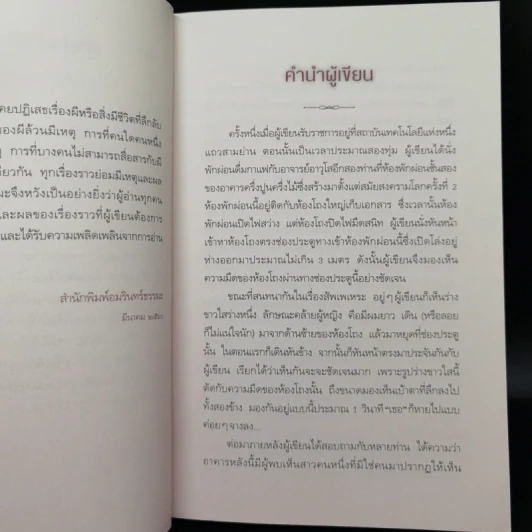 คยปฏิเสธเรื่องผีหรือสิ่งมีชีวิตที่ลึกลับ
องผีล้วนมีเหตุ การที่คนใดคนหนึ่ง
การที่บางคนไม่สามารถสื่อสารกับผี
ียวกัน ทุกเรื่องราวย่อมมีเหตุและผล
มะจึงหวังเป็นอย่างยิ่งว่าผู้อ่านทุกคน
และผลของเรื่องราวที่ผู้เขียนต้องการ
และได้รับความเพลิดเพลินจากการอ่าน
สำนักพิมพ์อมรินทร์ธรรมะ
มีนาคม ๒๕๖๐
คำนำผู้เขียน
ครั้งหนึ่งเมื่อผู้เขียนรับราชการอยู่ที่สถาบันเทคโนโลยีแห่งหนึ่ง
แถวสามย่าน ตอนนั้นเป็นเวลาประมาณสองทุ่ม ผู้เขียนได้นั่ง
พักผ่อนดื่มกาแฟกับอาจารย์อาวุโสอีกสองท่านที่ห้องพักผ่อนชั้นสอง
ของอาคารครึ่งปูนครึ่งไม้ซึ่งสร้างมาตั้งแต่สมัยสงครามโลกครั้งที่ 2
ห้องพักผ่อนนี้อยู่ติดกับห้องโถงใหญ่เก็บเอกสาร ซึ่งเวลานั้นห้อง
พักผ่อนเปิดไฟสว่าง แต่ห้องโถงปิดไฟมืดสนิท ผู้เขียนนั่งหันหน้า
เข้าหาห้องโถงตรงช่องประตูทางเข้าห้องพักผ่อนนี้ซึ่งเปิดโล่งอยู่
ห่างออกมาประมาณไม่เกิน 3 เมตร ดังนั้นผู้เขียนจึงมองเห็น
ความมืดของห้องโถงผ่านทางช่องประตูนี้อย่างชัดเจน
ขณะที่สนทนากันในเรื่องสัพเพเหระ อยู่ๆ ผู้เขียนก็เห็นร่าง
ขาวใสร่างหนึ่ง ลักษณะคล้ายผู้หญิง คือมีผมยาว เดิน (หรือลอย
ก็ไม่แน่ใจนัก) มาจากด้านซ้ายของห้องโถง แล้วมาหยุดที่ช่องประตู
นั้น ในตอนแรกก็เดินหันข้าง จากนั้นก็หันหน้าตรงมาประจันกันกับ
ผู้เขียน เรียกได้ว่าเห็นกันจะจะชัดเจนมาก เพราะรูปร่างขาวใสนี้
ตัดกับความมืดของห้องโถงนั้น ถึงขนาดมองเห็นเบ้าตาที่ลึกลงไป
ทั้งสองข้าง มองกันอยู่แบบนี้ประมาณ 1 วินาที "เธอ" ก็หายไปแบบ
ค่อยๆ จางลง...
ต่อมาภายหลังผู้เขียนได้สอบถามกับหลายท่าน ได้ความว่า
อาคารหลังนี้มีผู้พบเห็นสาวคนหนึ่งที่มิใช่คนมาปรากฏให้เห็น